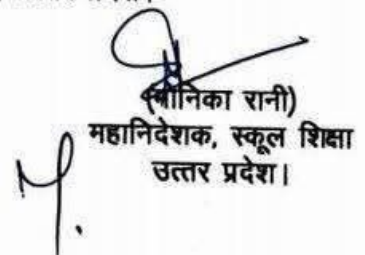 (मोनिका रानी)
महानिदेशक, स्कूल शिक्षा
उत्तर प्रदेश।